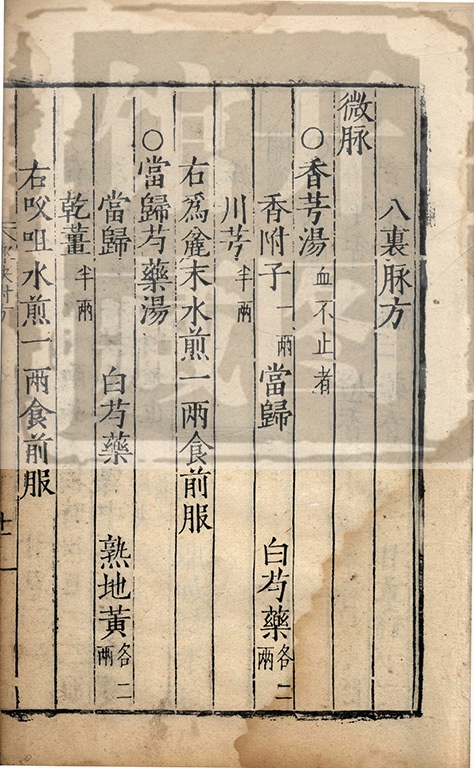 八裏脉方
微脉
○香芎湯血不止者
香附子一兩 當歸 白芍藥各二兩
川芎半兩
右爲麄末水煎一兩食前服
○當歸芍藥湯
當歸 白芍藥 熟地黃各二兩
乾薑半兩
右㕮咀水煎一兩食前服